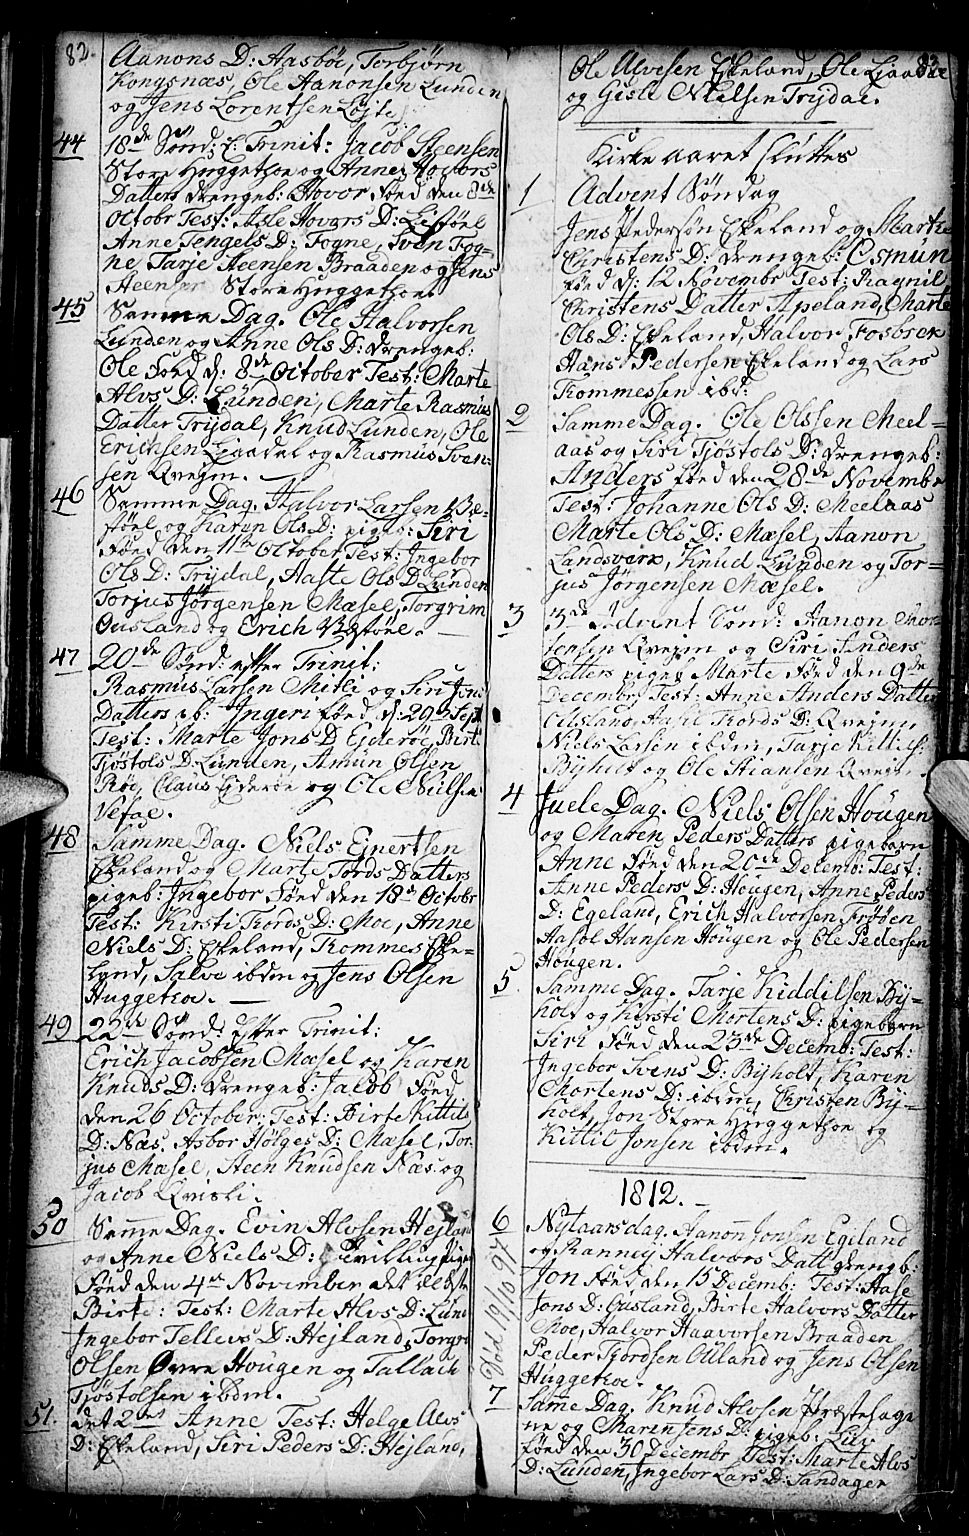 82.
Aanons D: Aasböe, Torbjörn
Kongsnæs, Ole Aanonsen Lunden
og Jens Lorentsen Löjte
44 18de Sönd: E: Trinit: Jacob Steensen
Store Huggethoe og Anne Hovors
Datters drengeb: Hovor föed den 8de
Octobr Test: Aslе Hovars D: Liestöel
Anne Tengels D: Fogne, Sven Fog=
ne Tarje Steensen Braaden og Jens
Steensen Store Huggethoe.
45 Samme Dag. Ole Halvorsen
Lunden og Anne Ols D: drengeb:
Ole föed d: 8de October Test: Marte
Alvs D: Lünden, Marte Rasmus
Datter Trÿdal, Knud Lunden, Ole
Erichsen Liaadal og Rasmus Sven=
sen Qvejm.
46 Samme Dag. Halvor Larsen Bæ=
töel og Karen Ols D: pigeb: Siri
föed den 11te October Test: Ingebor
Ols D: Trÿdal, Aaste Ols D: Lunden
Torjus Jörgensen Mæsel, Torgrim
Ousland og Erich Bætöel.
47 20de Sönd: efter Trinit:
Rasmus Larsen Mitli og Siri Jons
Datters pb: Ingeri föed d: 29 Sept
Test: Marte Jons D Ejderöe, Birte
Tjöstols D: Lunden, Amun Olsen
Röe, Claus Ejderöe og Ole Nielsen
Vefae.
48 Samme Dag. Niels Ejnertsen
Ekeland og Marte Tords Datters
pigeb: Ingebor föed den 18de Octobr
Test: Kirsti Tords D: Moe, Anne
Niels D: Ekeland, Tommes Eke=
land, Salve ibdm og Jens Olsen
Huggethoe.
49 22de Sönd: Efter Trinit:
Erich Jacobsen Mæsel og Karen
Knuds D: drengeb: Jacob föed
den 26 October: Test: Birte Kittils
D: Næs, Asbor Hölges D: Mæsel, Tor=
jus Mæsel, Steen Knudsen Næs og
Jacob Qvisli.
50 Samme Dag. Evin Alvsen Hejland
og Anne Niels D: Tvillingpiger
föed den 4de November det ældste
Birte: Test: Marte Alvs D: Lund
Ingebor Tellevs D: Hejland, Torgie
Olsen Övre Hougen og Tallach
Tjöstolsen ibdm.
51. det 2det Anne Test: Helge Alvs
D: Ekeland, Siri Peders D: Hejland,
83
Ole Alvesen Ekeland, Ole Liaadal
og Gisle Nielsen Trÿdal.
Kirke aaret sluttes
1 Advent Söndag
Jens Pedersön Ekeland og Marthe
Christens D: drengeb: Osmun
föed d: 12 Novembr Test: Ragnil
Christens Datter Apeland, Marte
Ols D: Ekeland, Halvor Fosbrek
Hans Pedersen Ekeland og Lars
Tommessen ibd:
2 Samme Dag. Ole Olssen Meel=
aas og Siri Tjöstols D: drengeb:
Anders föed den 28de Novembr
Test: Johanne Ols D: Meelaas
Marte Ols D: Mæsel, Aanon
Landsverk, Knud Lunden og Tor=
jus Jörgensen Mæsel.
3 3de Advent Sönd: Aanon Mor=
tensen Qvejm og Siri Anders
Datters pigeb Marte föed den 9de
Decembr Test: Anne Anders Datter
Ousland, Aaste Tords D: Qvejm,
Niels Larsen ibdm, Tarje Kittils:
Bÿholt og Ole Stiansen Qvejm
4 Juele Dag. Niels Olsen Hougen
og Maren Peders Datters pigebarn
Anne föed den 20de Decemb: Test:
Anne Peders D: Hougen, Anne Peders
D: Egeland, Erich Halvorsen Fröÿen
Aasol Hansen Hougen og Ole Pedersen
Hougen.
5 Samme Dag. Tarje Kiddilsen Bÿ=
holt og Kirsti Mortens D: pigebarn
Siri föed den 23de Decemb: Test:
Ingebor Svens D: Bÿholt, Karen
Mortens D: ibdm, Christen Bÿ=
holt, Jon Store Huggethoe og
Kittil Jonsen ibdm.
1812.
6 Nytaarsdag. Aanon Jonsen Egeland
og Ranney Halvors Datt drengb:
Jon föed den 15 Decemb: Test: Aase
Jons D: Ousland, Birte Halvors Datter
Moe, Halvor Haavorsen Braaden
Peder Tjordsen Ouland og Jens Olsen
Huggethoe.
Död 19/10 97
7 Same Dag. Knud Alvsen Præstehage
ne og Maren Jens D: pigeb: Liv
föed den 30 Decembr Test: Marte Alvs
D: Lunden, Ingebor Lars D: Sandager